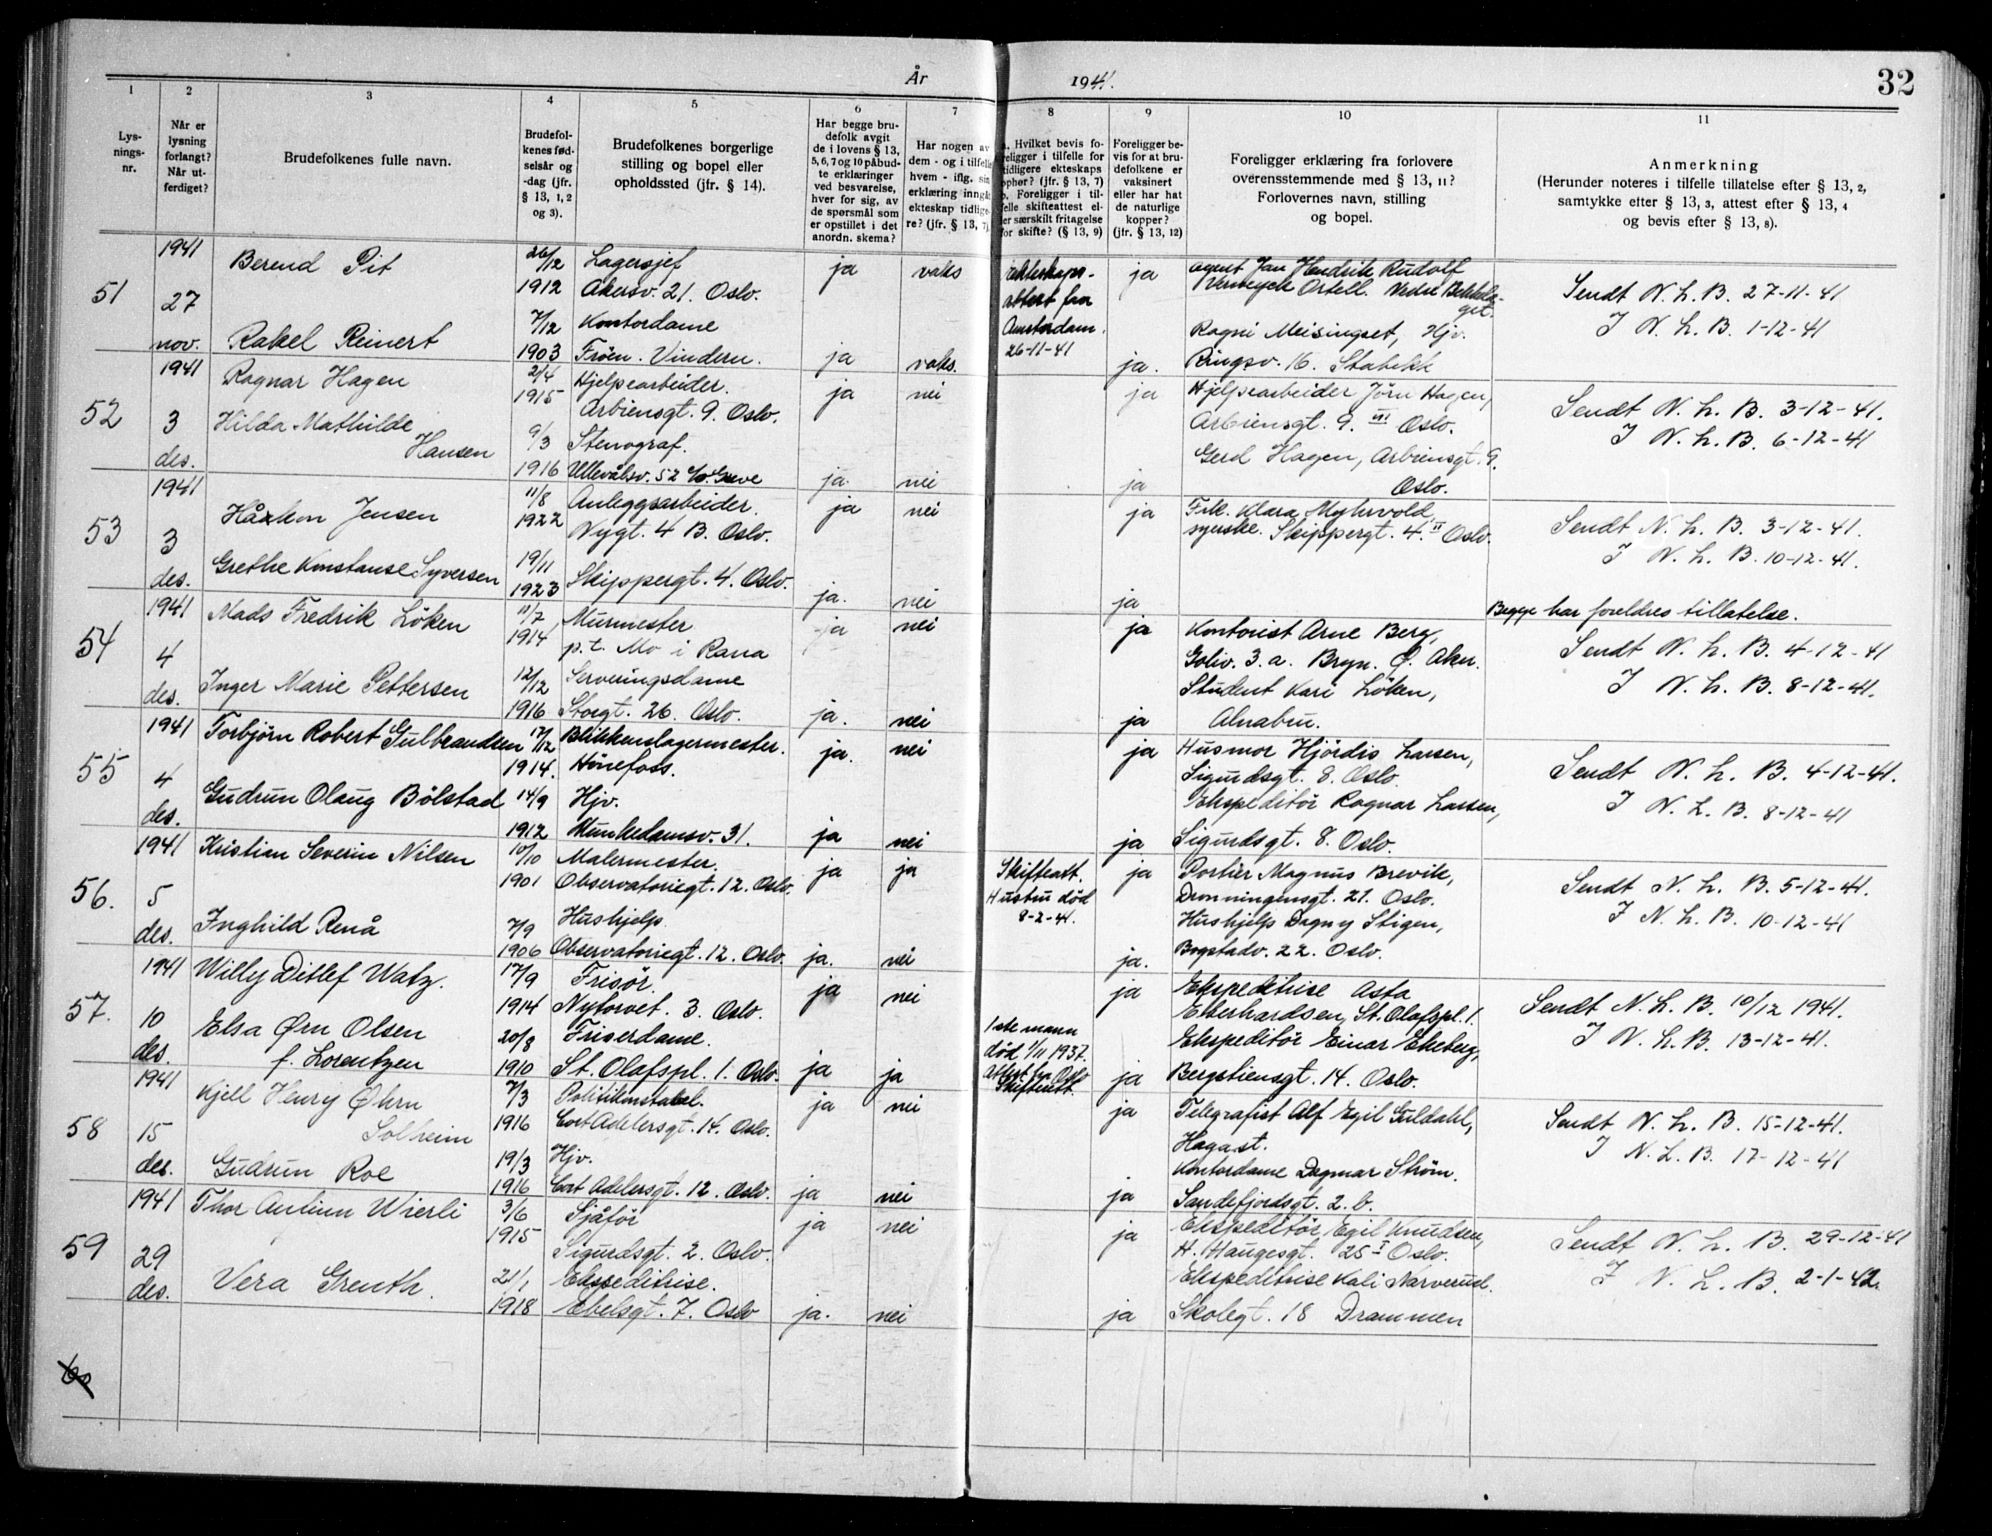 År 1941. 32
1 2 3 4 5 6 7 8 9 10 11
Lysningsnr.
Når er lysning forlangt? Når utferdiget?
Brudefolkenes fulle navn.
Brudefolkenes fødselsår og -dag (jfr. § 13, 1, 2 og 3).
Brudefolkenes borgerlige stilling og bopel eller opholdssted (jfr. § 14).
Har begge brudefolk avgit de i lovens § 13, 5, 6, 7 og 10 påbudte erklæringer ved besvarelse, hver for sig, av de spørsmål som er opstillet i det anordn. skema?
Har nogen av dem - og i tilfelle hvem - iflg. sin erklæring inngått ekteskap tidligere? (jfr. § 13, 7).
a. Hvilket bevis foreligger i tilfelle for tidligere ekteskaps ophør? (jfr. § 13, 7) b. Foreligger i tilfelle skifteattest eller særskilt fritagelse for skifte? (§ 13, 9)
Foreligger bevis for at brudefolkene er vaksinert eller har hat de naturlige kopper? (jfr. § 13, 12)
Foreligger erklæring fra forlovere overensstemmende med § 13, 11? Forlovernes navn, stilling og bopel.
Anmerkning (Herunder noteres i tilfelle tillatelse efter § 13, 2, samtykke efter § 13, 3, attest efter § 13, 4 og bevis efter § 13, 8).
51
1941 27 nov.
Berend Pit 26/12 1912 Lagersjef Akersv. 21. Oslo. ja vaks ja
Ekteskapsattest fra Amsterdam. 26-11-41
agent Jan Hendrik Rudolf
Nedre Bekkelaget.
Rakel Reinert 7/12 1903 Kontordame Frøen. Vindern. ja vaks. ja.
Ragni Meisingset, Hjv.
Ringsv. 16. Stabekk
Sendt N. L. B. 27-11-41
I N. L. B. 1-12-41
52
1941 3 des.
Ragnar Hagen 2/4 1915 Hjelpearbeider. Arbiensgt. 9. Oslo. ja nei ja
Hjelpearbeider Jørn Hagen,
Arbiensgt. 9. III Oslo.
Hilda Mathilde Hansen 9/3 1916 Stenograf. Ullevålsv. 52 c/o Greve ja. nei ja
Gerd Hagen, Arbiensgt. 9.
Oslo.
Sendt N. L. B. 3-12-41.
I N. L. B. 6-12-41
53
1941 3 des.
Håkon Jensen 11/8 1922 Anleggsarbeider. Nygt. 4 B. Oslo. ja nei ja
Frk. Klara Myhrvold
syerske. Skippergt. 4. II Oslo.
Grethe Konstanse Syversen 19/11 1923 Skippergt. 4. Oslo. ja. nei ja
Sendt N. L. B. 3-12-41.
I N. L. B. 10-12-41.
Begge har foreldres tillatelse.
54
1941 4 des.
Mads Fredrik Löken 11/7 1914 Murmester p.t. Mo i Rana ja nei ja
Kontorist Arne Berg,
Goliv. 3. a. Bryn. Ø. Aker.
Inger Marie Pettersen 12/12 1916 Serveringsdame Storgt. 26. Oslo. ja. nei ja
Student Kari Löken,
Alnabru.
Sendt N. L. B. 4-12-41
I N. L. B. 8-12-41.
55
1941 4 des.
Torbjörn Robert Gulbrandsen 17/12 1914. Blikkenslagermester. Hönefoss. ja. nei ja
Husmor Hjördis Larsen,
Sigurdsgt. 8. Oslo.
Gudrun Olaug Bölstad 14/9 1912 Hjv. Munkedamsv. 31. ja nei ja
Ekspeditör Ragnar Larsen,
Sigurdsgt. 8. Oslo.
Sendt N. L. B. 4-12-41.
I N. L. B. 8-12-41
56.
1941 5 des.
Kristian Severin Nilsen 10/10 1901 Malermester. Observatoriegt. 12. Oslo. ja ja ja
Skifteatt. Hustru död 8-2-41.
Portier Magnus Brevik,
Dronningensgt. 21. Oslo.
Inghild Renå 7/9 1906 Hushjelp. Observatoriegt. 12. Oslo. ja. nei ja.
Hushjelp Dagny Stigen,
Bogstadv. 22. Oslo.
Sendt N. L. B. 5-12-41.
I N. L. B. 10-12-41
57.
1941 10 des.
Willy Ditlef Watz. 17/9 1914 Frisör. Nytorvet. 3. Oslo. ja nei ja
Ekspeditrise Asta
Eberhardsen, St. Olafspl. 1.
Elsa Ørn Olsen f. Lorentzen 20/8 1910 Friserdame. St. Olafspl. 1. Oslo. ja ja ja
1ste mann död 1/11 1937. attest fra Oslo Skifterett.
Ekspeditör Einar Ekeberg,
Bergstiensgt. 14. Oslo.
Sendt N. L. B. 10/12 1941.
I N. L. B. 13-12-41.
58
1941 15 des.
Kjell Henry Øhrn Solheim 7/3 1916 Politikonstabel. Cort Adelersgt. 14. Oslo. ja nei ja
Telegrafist Alf Egil Guldahl,
Haga st.
Gudrun Roe 19/3 1916 Hjv. Cort Adelersgt. 12. Oslo. ja nei ja
Kontordame Dagmar Ström.
Sandefjordsgt. 2. b.
Sendt N. L. B. 15-12-41.
I N. L. B. 17-12-41
59
1941 29 des.
Thor Wierli 3/6 1915 Sjåför Sigurdsgt. 2. Oslo. ja nei ja
Ekspeditör Egil Knudsen,
H. Haugesgt. 25 I Oslo.
Vera Grenth. 21/1 1918 Ekspeditrise. Ebelsgt. 7. Oslo ja. nei ja
Ekspeditrise Kali Narverud.
Skolegt. 18 Drammen
Sendt N. L. B. 29-12-41
I N. L. B. 2-1-42.
60